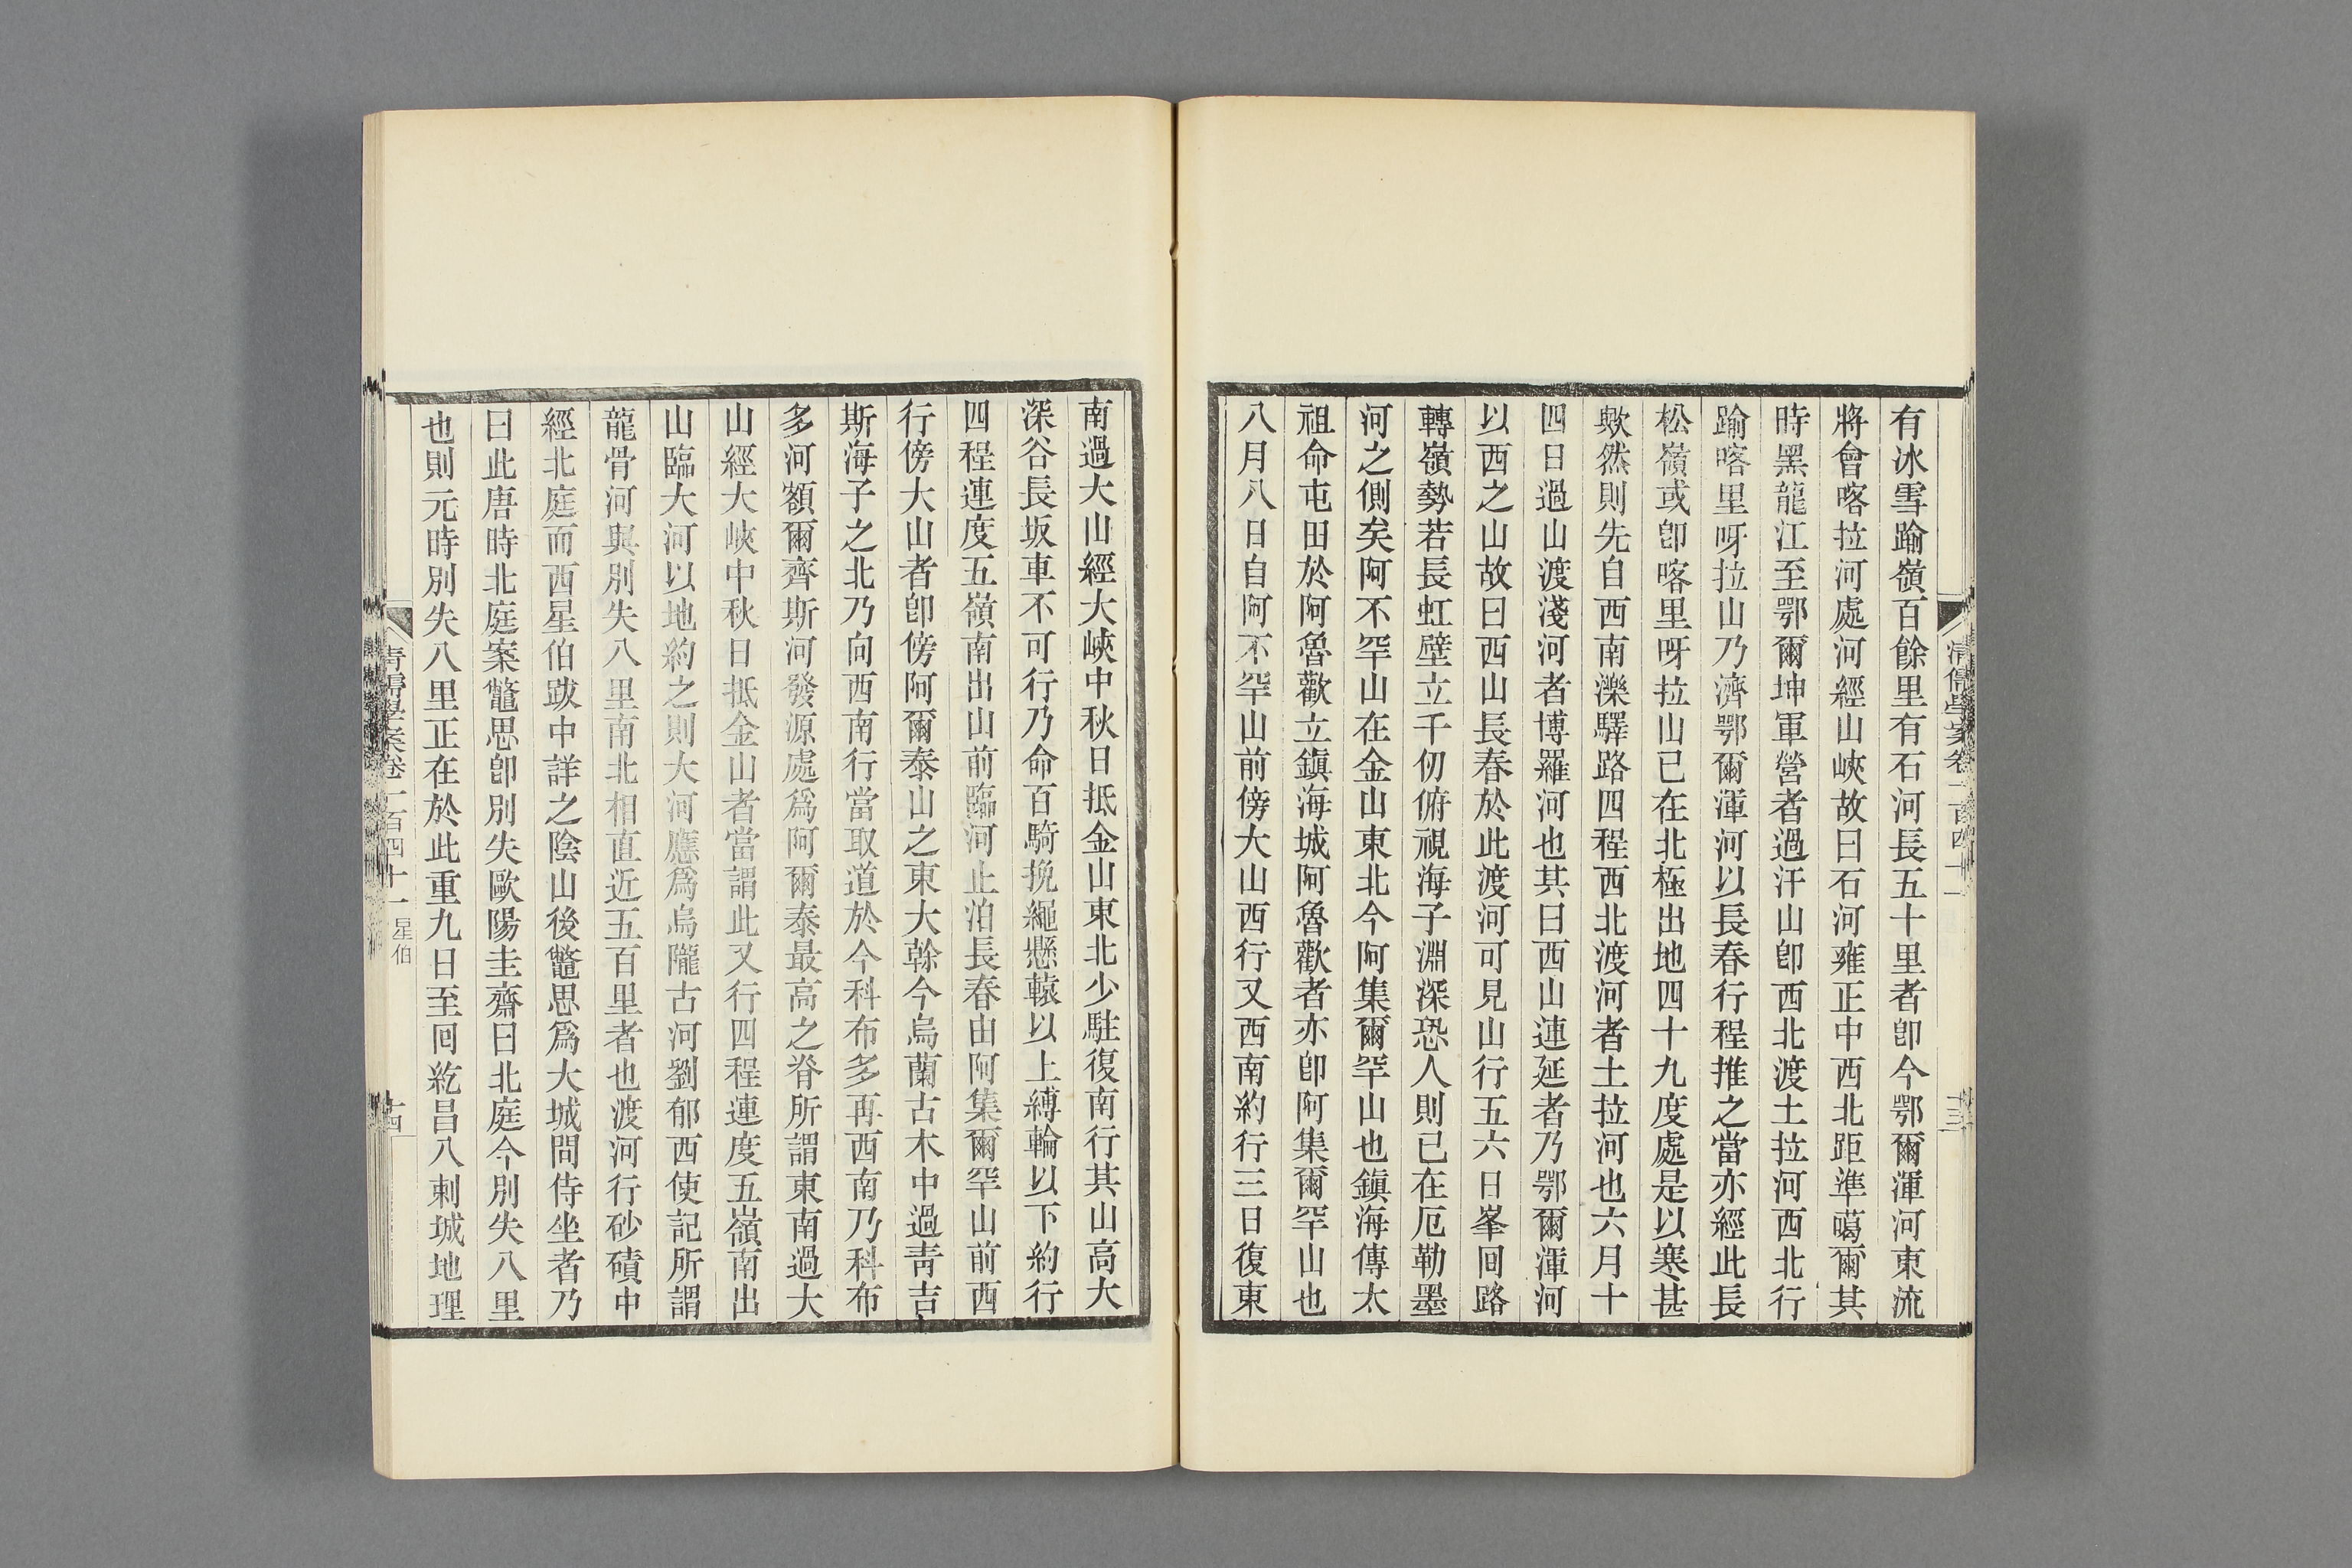 有冰雪踰嶺百餘里有石河長五十里者卽今鄂爾渾河東流
將會喀拉河處河經山峽故曰石河雍正中西北距準噶爾其
時黑龍江至鄂爾坤軍營者過汗山卽西北渡土拉河西北行
踰喀里呀拉山乃濟鄂爾渾河以長春行程推之當亦經此長
松嶺或卽喀里呀拉山已在北極出地四十九度處是以寒甚
歟然則先自西南濼驛路四程西北渡河者土拉河也六月十
四日過山渡淺河者博羅河也其曰西山連延者乃鄂爾渾河
以西之山故曰西山長春於此渡河可見山行五六日峯回路
轉嶺勢若長虹壁立千仞俯視海子淵深恐人則已在厄勒墨
河之側矣阿不罕山在金山東北今阿集爾罕山也鎭海傳太
祖命屯田於阿魯歡立鎭海城阿魯歡者亦卽阿集爾罕山也
八月八日自阿不罕山前傍大山西行又西南約行三日復東
南過大山經大峽中秋日抵金山東北少駐復南行其山高大
深谷長坂車不可行乃命百騎挽繩懸轅以上縛輪以下約行
四程連度五嶺南出山前臨河止泊長春由阿集爾罕山前西
行傍大山者卽傍阿爾泰山之東大榦今烏蘭古木中過青吉
斯海子之北乃向西南行當取道於今科布多再西南乃科布
多河額爾齊斯河發源處爲阿爾泰最高之脊所謂東南過大
山經大峽中秋日抵金山者當謂此又行四程連度五嶺南出
山臨大河以地約之則大河應爲烏隴古河劉郁西使記所謂
龍骨河與別失八里南北相直近五百里者也渡河行砂磧中
經北庭而西星伯跋中詳之陰山後鼈思爲大城問侍坐者乃
曰此唐時北庭案鼈思卽別失歐陽圭齋曰北庭今別失八里
也則元時別失八里正在於此重九日至回紇昌八剌城地理
清儒學案卷一百四十一
星伯
十四